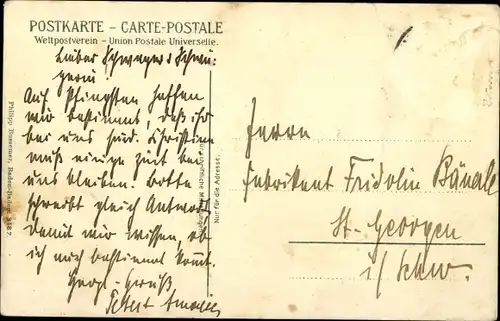 POSTKARTE – CARTE-POSTALE
Weltpostverein – Union Postale Universelle.
Lieber Schwager & Schwä-
gerin
Auf Pfingsten hoffen
wir bestimmt, daß ihr
bei uns seid. Christine
muß einige Zeit bei
uns bleiben. Bitte
schreibt gleich Antwort
damit wir wissen, ob
ihr auch bestimmt kommt.
Herzl. Gruß
Philipp Bussemer, Baden-Baden 3187.
Nur für die Adresse.
Herrn
Fabrikant Fridolin
St. Georgen
i/ Schw.